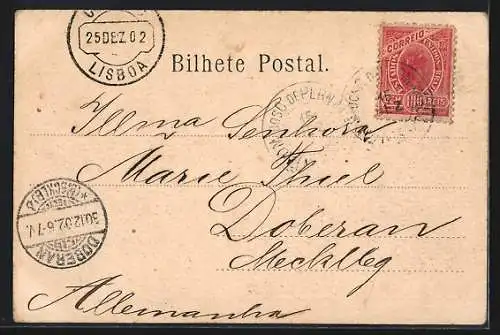 25 DEZ 02
LISBOA
Bilhete Postal.
CORREIO
100 REIS
Illma Senhora
Marie Thiel
Doberan
Mecklbg
Allemanha
30.12.02.6-7V.
DOBERAN